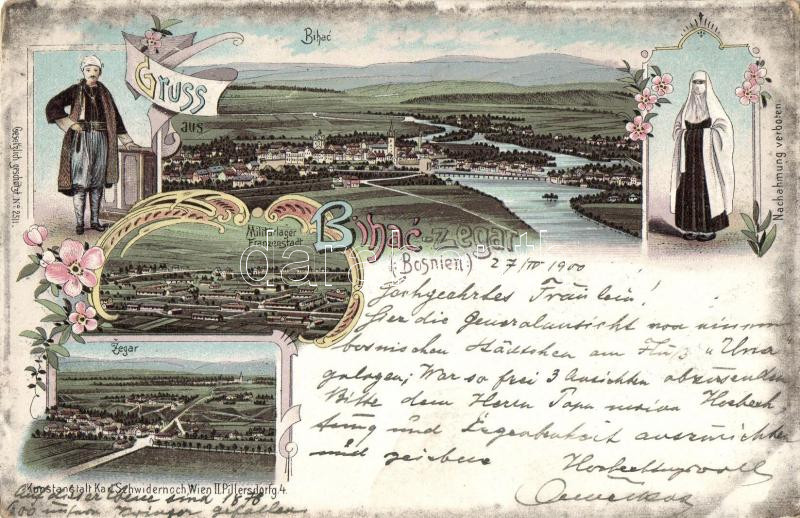 Bihać
Gruss
aus
Bihać-Zegar
(Bosnien)
Militärlager
Franzenstadt
Žegar
Gesetzlich geschützt No 2511.
Nachahmung verboten
Kunstanstalt Karl Schwidernoch, Wien II. Pillersdorfg. 4.
27/IV 1900
Hochgeehrtes Fräulein!
Hier die Generalansicht von einem
bosnischen Städtchen am Fluß "Una
gelegen; War so frei 3 Ansichten abzusenden
Bitte dem Herrn Papa meine Hochach
tung und Ergebenheit auszurichten
und zeichne
Hochachtungsvoll
sind 1878